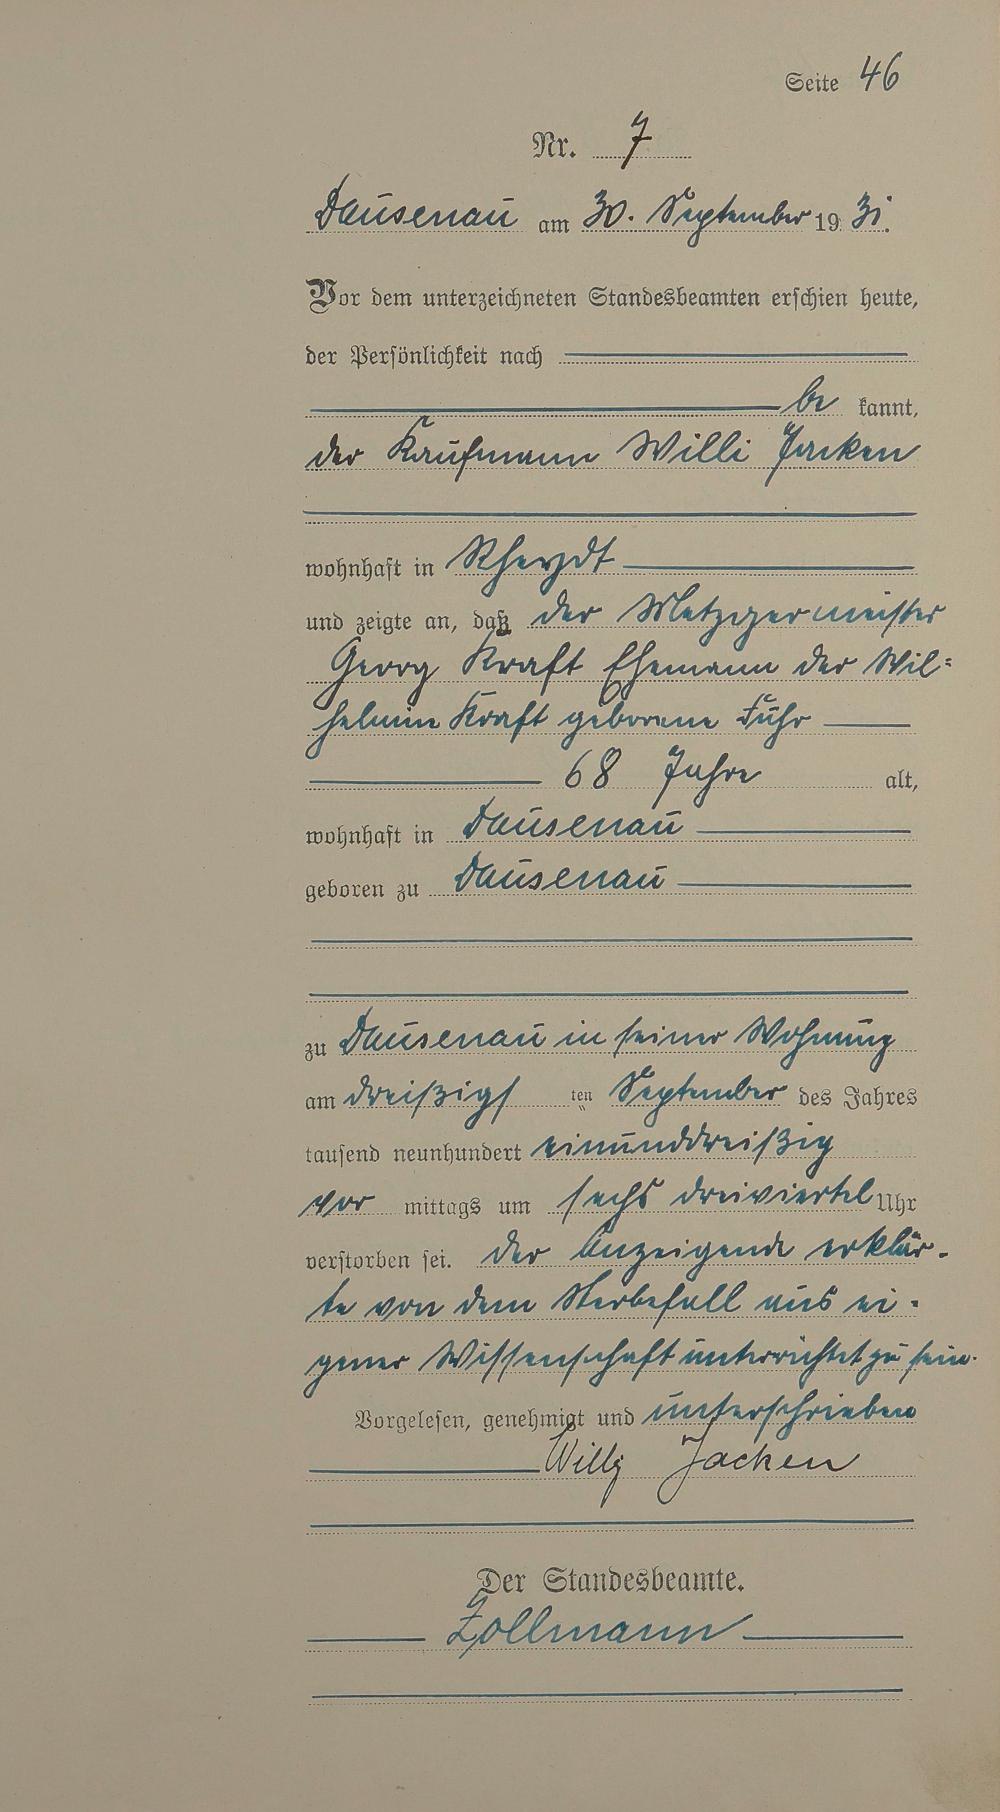 Seite 46
Nr. 7
Dausenau am 30. September 1931.
Vor dem unterzeichneten Standesbeamten erschien heute,
der Persönlichkeit nach
be kannt,
der Kaufmann Willi Jacken
wohnhaft in Rheydt
und zeigte an, daß der Metzgermeister
Georg Kraft Ehemann der Wil=
helmine Kraft geborene Fuhr
68 Jahre alt,
wohnhaft in Dausenau
geboren zu Dausenau
zu Dausenau in seiner Wohnung
am dreißigs ten September des Jahres
tausend neunhundert einunddreißig
vor mittags um sechs dreiviertel Uhr
verstorben sei. Der Anzeigende erklär-
te von dem Sterbefall aus ei-
gener Wissenschaft unterrichtet zu sein.
Vorgelesen, genehmigt und unterschrieben
Willy Jacken
Der Standesbeamte.
Zollmann